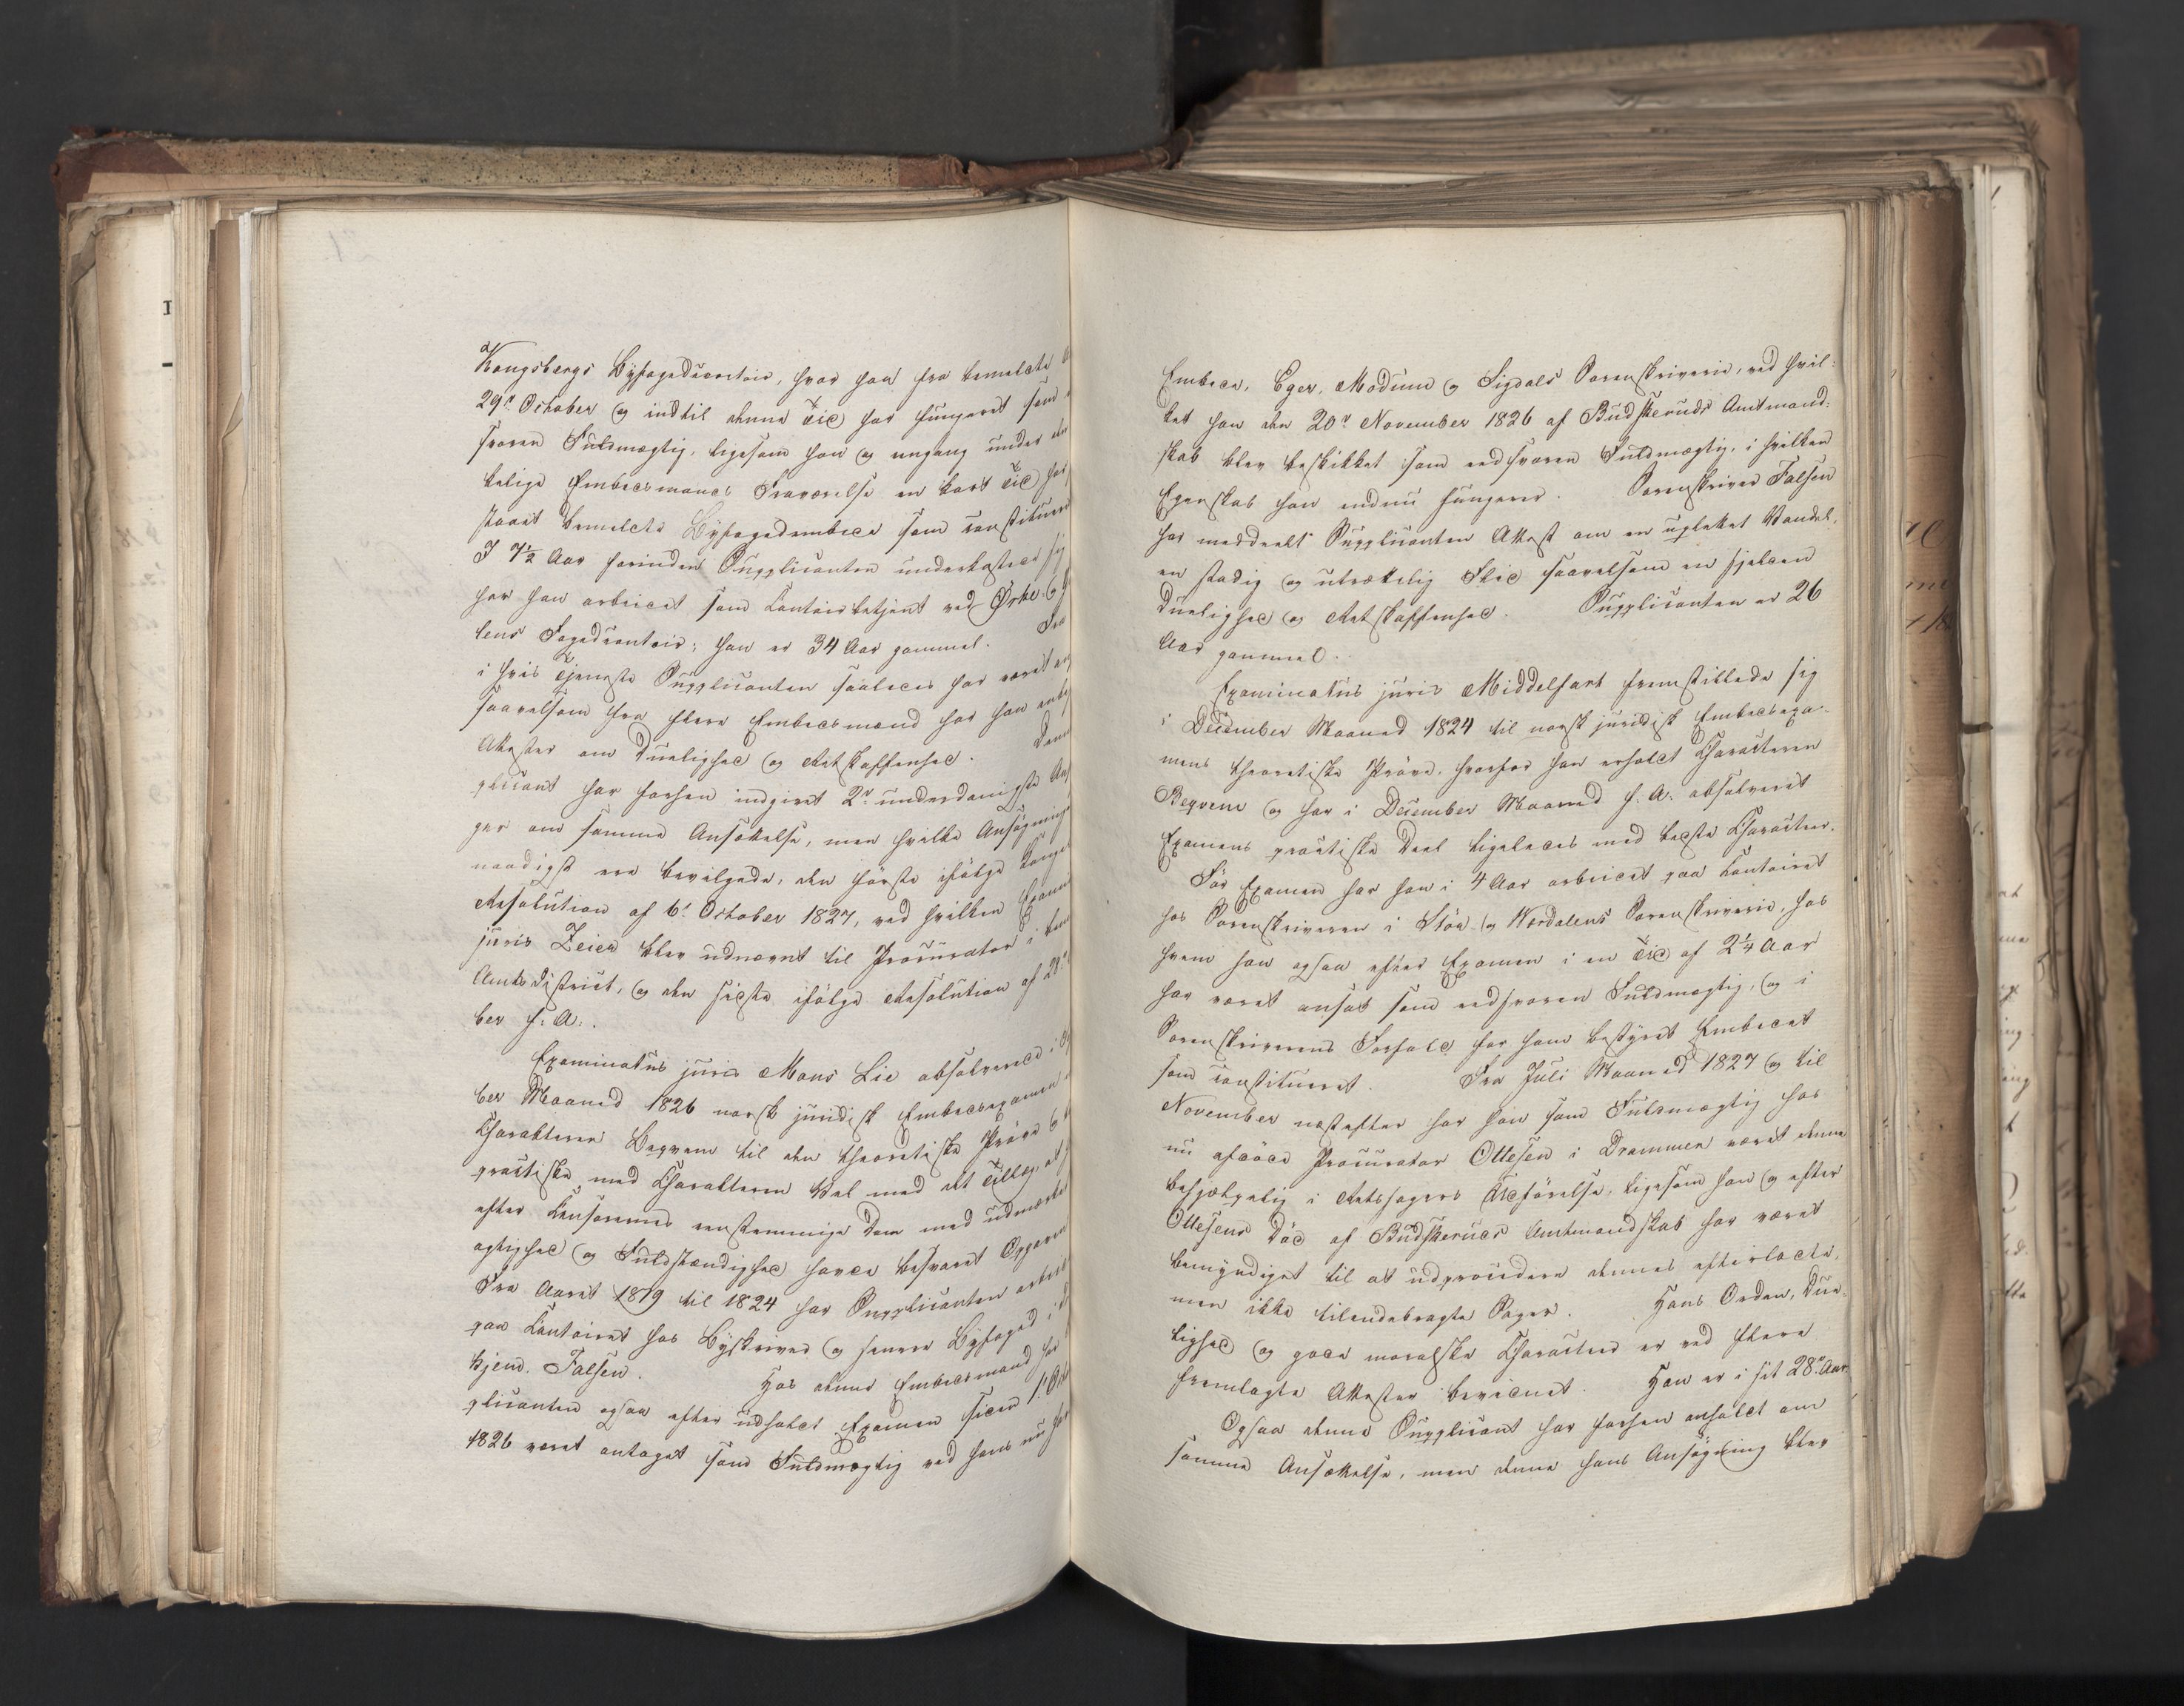 Kongsbergs Byfogedcontoir, hvor han fra bemeldte
29de October og indtil denne Tid har fungeret som
svoren Fuldmægtig, ligesom han og engang under
kelige Embedsmands Fraværelse en kort Tid har
staaet bemeldte Byfogedembede som constitueret
I 7½ Aar forinden Supplicanten underkastede sig
har han arbeidet som Contoirbetjent ved Orke- og
lens Fogedcontoir; han er 34 Aar gammel. Fra
i hvis Tjeneste Supplicanten saaledes har været
saavelsom fra flere Embedsmænd har han
Attester om Duelighed og Retskaffenhed. Denne
plicant har forhen indgivet 2de underdanigste
ger om samme Ansættelse, men hvilke Ansøgninger
naadigst ere bevilgede, den første ifølge Konge
Resolution af 6te October 1827, ved hvilken Exami
juris Zeier blev udnævnt til Procurator i
Amtsdistrict, og den sidste ifølge Resolution af 28de
ber f. A.
Examinatus juris Mons Lie absolverede i
ber Maaned 1826 norsk juridisk Embedsexamen
Charakteren Beqvem til den theoretiske Prøve og
practiske med Charakteren Vel med det Tillæg at
efter Censorernes eenstemmige Dom med udmærket
agtighed og Fuldstændighed havde besvaret Opgaven
Fra Aaret 1819 til 1824 har Supplicanten arbeidet
paa Contoiret hos Byskriver og senere Byfoged i
kjend. Falsen. Hos denne Embedsmand har
plicanten ogsaa efter udholdt Examen siden 1ste
1826 været antaget som Fuldmægtig ved hans nu
Embede, Eger, Modum og Sigdals Sorenskriverie, ved hvil-
ket han den 20de November 1826 af Budskeruds Amtmand-
skab blev beskikket som eedsvoren Fuldmægtig, i hvilken
Egenskab han endnu fungerer. Sorenskriver Falsen
har meddeelt Supplicanten Attest om en uplettet Vandel,
en stadig og utrættelig Flid saavelsom en sjelden
Duelighed og Retskaffenhed. Supplicanten er 26
Aar gammel.
Examinatus juris Middelfart fremstillede sig
i December Maaned 1824 til norsk juridisk Embedsexa-
mens theoretiske Prøve, hvorfor han erholdt Characteren
Beqvem og har i December Maaned f. A. absolveret
Examens practiske Deel ligeledes med bedste Character.
Før Examen har han i 4 Aar arbeidet paa Contoiret
hos Sorenskriveren i Stør- og Værdalens Sorenskriverie, hos
hvem han ogsaa efter Examen i en Tid af 2¼ Aar
har været ansat som eedsvoren Fuldmægtig, og i
Sorenskriverens Forfald har han bestyret Embedet
som constitueret. Fra Juli Maaned 1827 og til
November næstefter har han som Fuldmægtig hos
nu afdøde Procurator Ottesen i Drammen været denne
behjælpelig i Retssagers Udførelse, ligesom han og efter
Ottesens Død af Budskeruds Amtmandskab har været
bemyndiget til at udprocedere dennes efterladte,
men ikke tilendebragte Sager. Hans Orden, Due-
lighed og gode moralske Character er ved flere
fremlagte Attester bevidnet. Han er i sit 28de Aar.
Ogsaa denne Supplicant har forhen anholdt om
samme Ansættelse, men denne hans Ansøgning blev